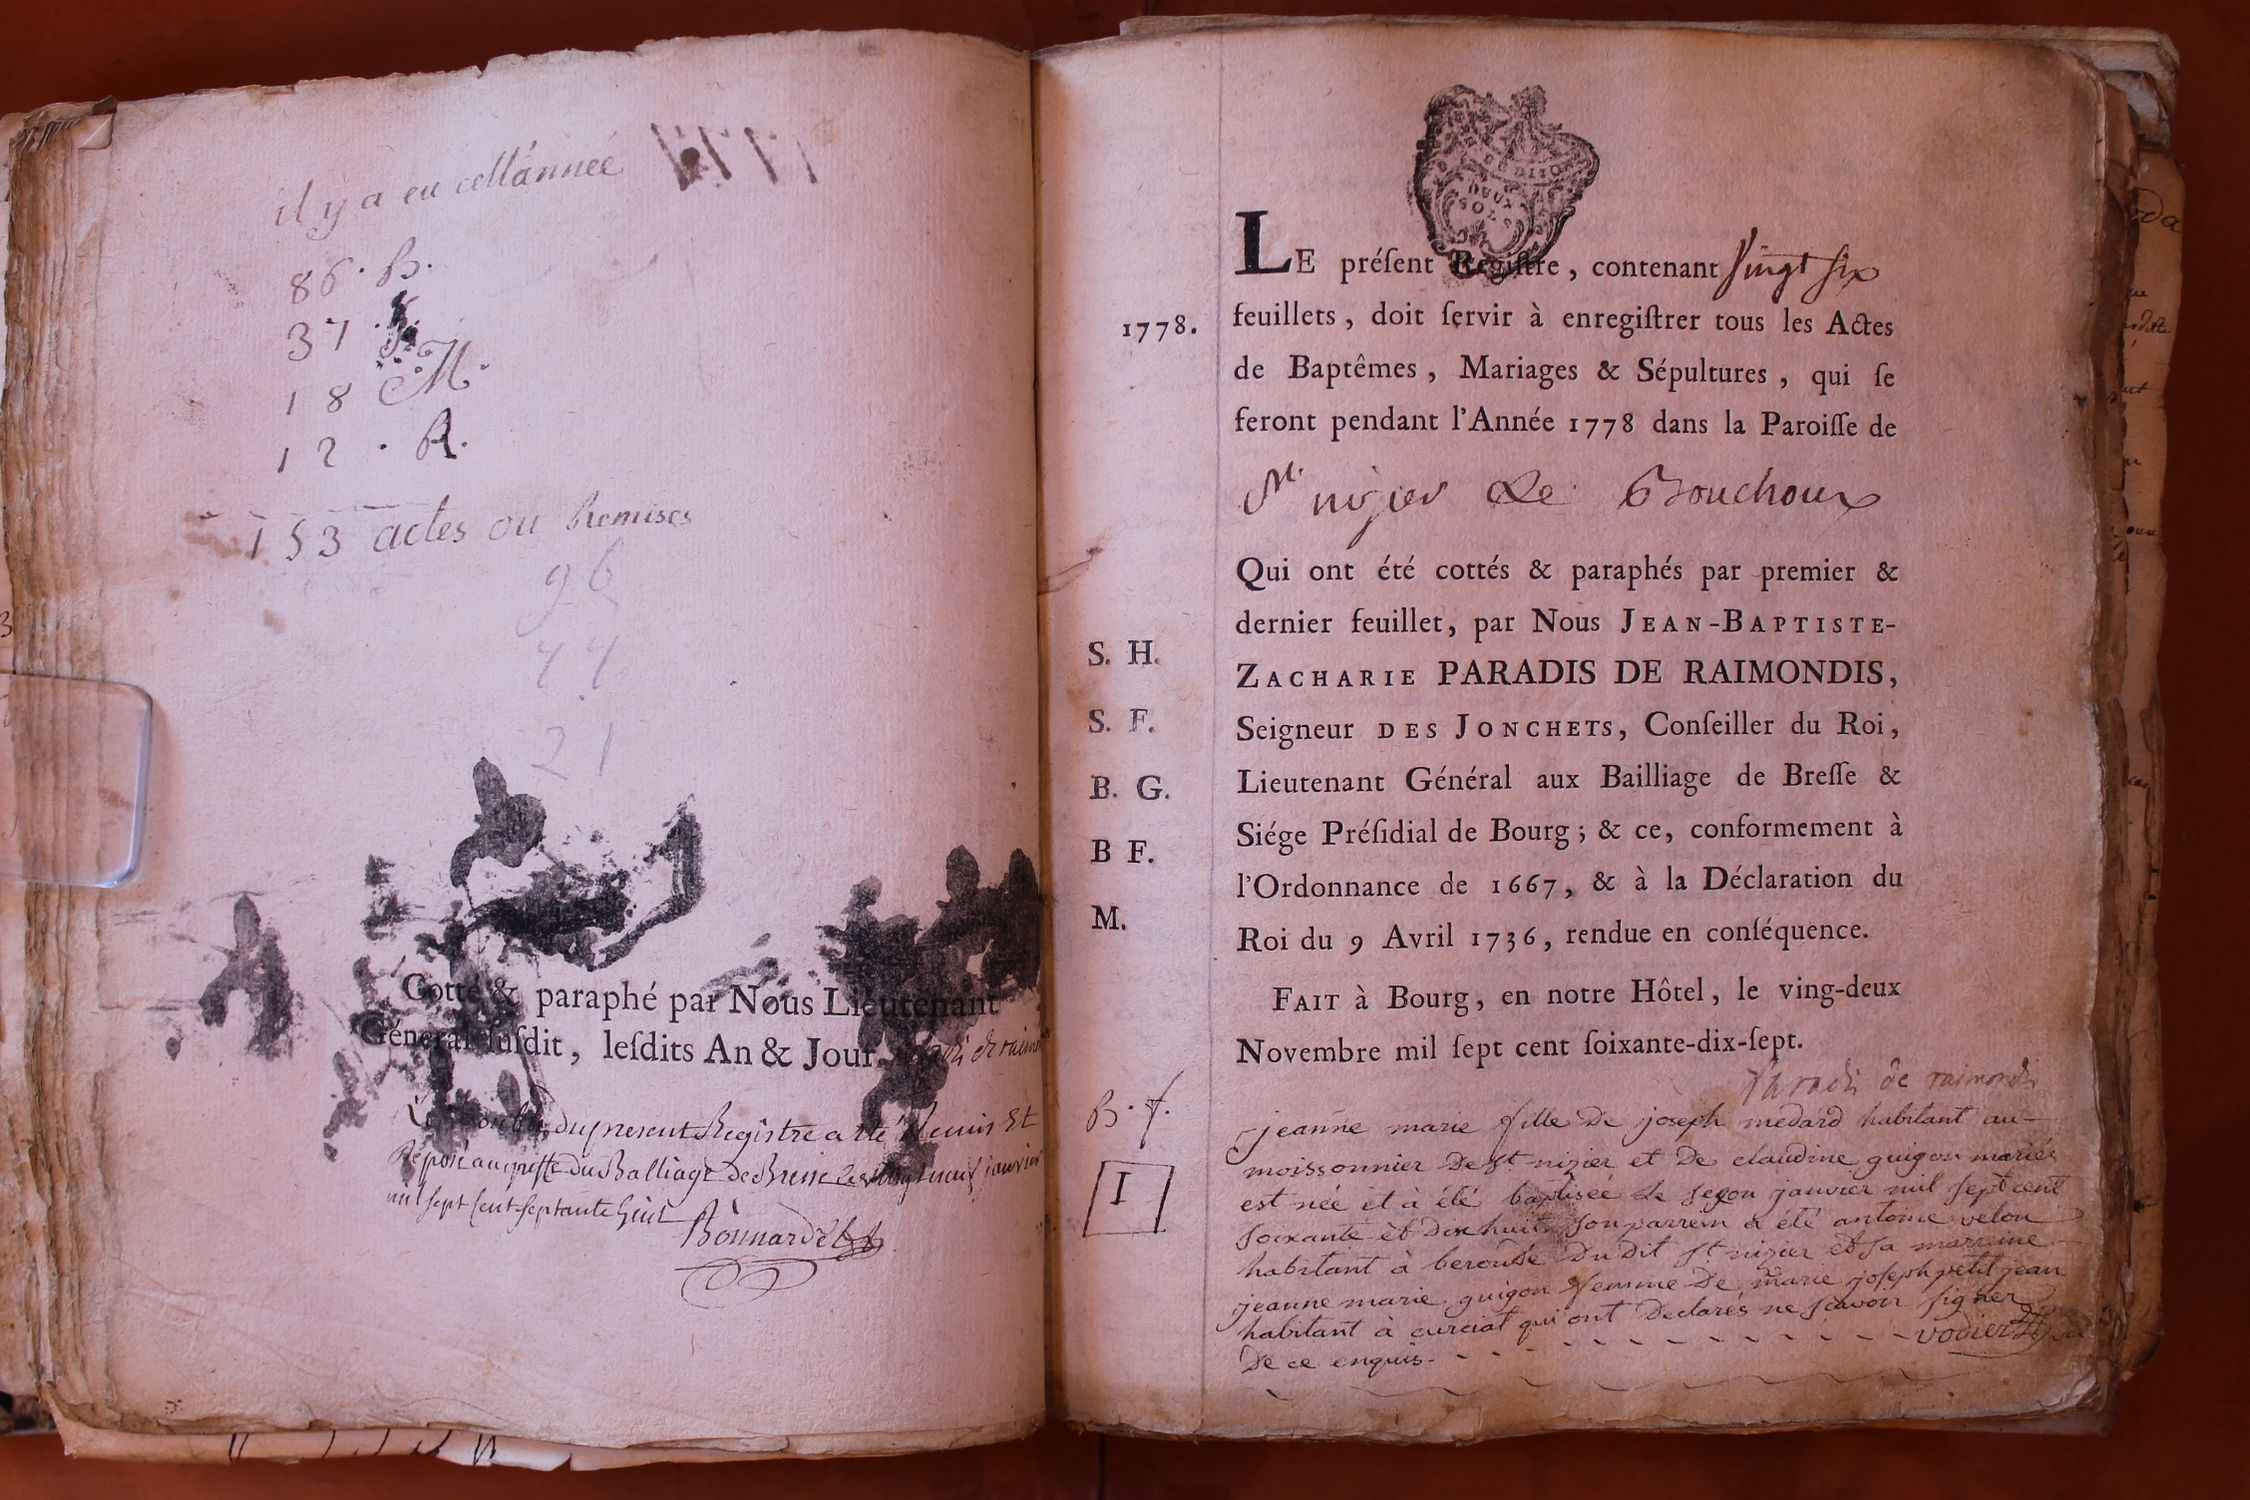 il y a eu cett'année
86. B.
37.
18 M.
12. R.
153 actes ou Remises
96
44
21
Cotté & paraphé par Nous Lieutenant
Géneral ſuſdit, leſdits An & Jour.
du present Registre a eté Remis Et
Deposé au greffe Du Balliage De Bresse Le vingt neuf janvier
mil sept Cent septante huit
Bonnardet
DEUX
SOLS
LE préſent Regiſtre, contenant Vingt six
1778.
feuillets, doit ſervir à enregiſtrer tous les Actes
de Baptêmes, Mariages & Sépultures, qui ſe
feront pendant l'Année 1778 dans la Paroiſſe de
St. nizier Le Bouchoux
Qui ont été cottés & paraphés par premier &
dernier feuillet, par Nous JEAN-BAPTISTE-
ZACHARIE PARADIS DE RAIMONDIS,
Seigneur DES JONCHETS, Conſeiller du Roi,
Lieutenant Général aux Bailliage de Breſſe &
Siége Préſidial de Bourg; & ce, conformement à
l'Ordonnance de 1667, & à la Déclaration du
Roi du 9 Avril 1736, rendue en conſéquence.
FAIT à Bourg, en notre Hôtel, le ving-deux
Novembre mil ſept cent ſoixante-dix-ſept.
Paradis de raimondis
S. H.
S. F.
B. G.
B F.
M.
B. f.
1
jeanne marie fille De joseph medard habitant au
moissonnier De st nizier et De claudine guigon mariés
est née et à été baptisée le segon janvier mil sept cent
soixante et Dix huit son parrein a été antoine velon
habitant à Du dit st nizier et sa marreine
jeanne marie guigon femme De marie joseph petit jean
habitant à curciat qui ont Declarés ne scavoir signer
De ce enquis. vodier